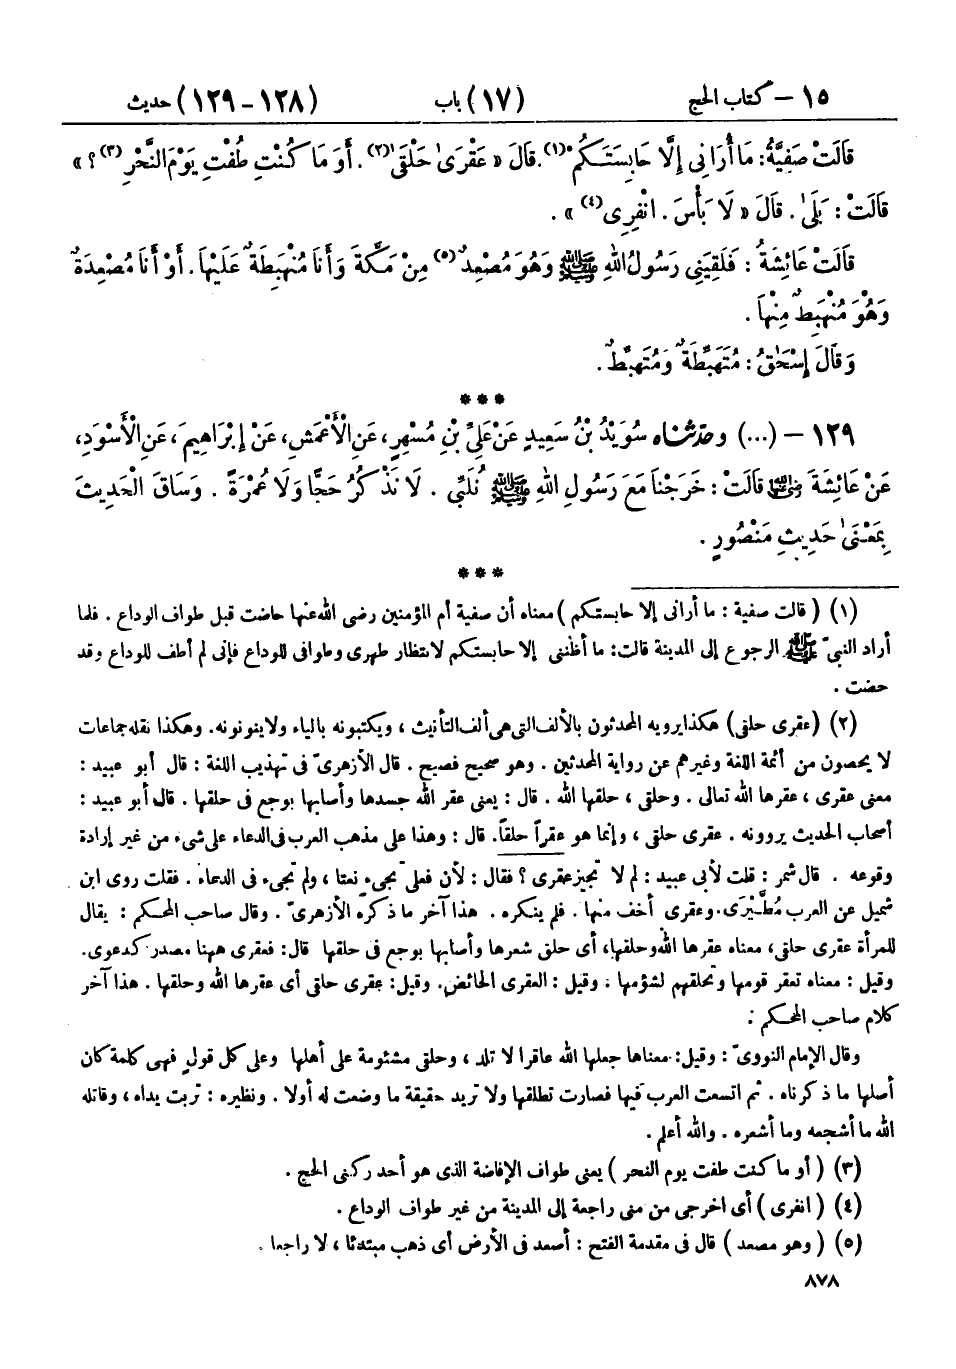 ١٥ – كتاب الحج (١٧) باب (١٢٨ – ١٢٩) حديث
قَالَتْ صَفِيَّةُ : مَا أُرَانِي إِلَّا حَابِسَتَكُمْ (١) . قَالَ « عَقْرَىٰ حَلْقَىٰ (٢) . أَوَ مَا كُنْتِ طُفْتِ يَوْمَ النَّحْرِ (٣) ؟ »
قَالَتْ : بَلَىٰ . قَالَ « لَا بَأْسَ . انْفِرِى (٤) » .
قَالَتْ عَائِشَةُ : فَلَقِيَنِى رَسُولُ اللهِ ﷺ وَهُوَ مُصْعِدٌ (٥) مِنْ مَكَّةَ وَأَنَا مُنْهَبِطَةٌ عَلَيْهَا . أَوْ أَنَا مُصْعِدَةٌ
وَهُوَ مُنْهَبِطٌ مِنْهَا .
وَقَالَ إِسْحَاقُ : مُتَهَبِّطَةٌ وَمُتَهَبِّطٌ .
***
١٢٩ – (...) وحدثناه سُوَيْدُ بْنُ سَعِيدٍ عَنْ عَلِيِّ بْنِ مُسْهِرٍ ، عَنِ الْأَعْمَشِ ، عَنْ إِبْرَاهِيمَ ، عَنِ الْأَسْوَدِ ،
عَنْ عَائِشَةَ رضي الله عنها قَالَتْ : خَرَجْنَا مَعَ رَسُولِ اللهِ ﷺ نُلَبِّى . لَا نَذْكُرُ حَجًّا وَلَا عُمْرَةً . وَسَاقَ الْحَدِيثَ
بِمَعْنَىٰ حَدِيثِ مَنْصُورٍ .
***
(١) ( قالت صفية : ما أرانى إلا حابستكم ) معناه أن صفية أم المؤمنين رضى الله عنها حاضت قبل طواف الوداع . فلما
أراد النبىّ ﷺ الرجوع إلى المدينة قالت : ما أظننى إلا حابستكم لانتظار طهرى وطوافى للوداع فإنى لم أطف للوداع وقد
حضت .
(٢) (عقرى حلقى) هكذا يرويه المحدثون بالألف التى هى ألف التأنيث ، ويكتبونه بالياء ولاينونونه . وهكذا نقله جماعات
لا يحصون من أئمة اللغة وغيرهم عن رواية المحدثين . وهو صحيح فصيح . قال الأزهرىّ فى تهذيب اللغة : قال أبو عبيد :
معنى عقرى ، عقرها الله تعالى . وحلقى ، حلقها الله . قال : يعنى عقر الله جسدها وأصابها بوجع فى حلقها . قال أبو عبيد :
أصحاب الحديث يروونه . عقرى حلقى ، وإنما هو عقراً حلقاً . قال : وهذا على مذهب العرب فى الدعاء على شىء من غير إرادة
وقوعه . قال شمر : قلت لأبى عبيد : لم لا تجيز عقرى ؟ فقال : لأن فعلى تجىء نعتا ، ولم تجىء فى الدعاء . فقلت روى ابن
شميل عن العرب مُطَّيْرَى . وعقرى أخف منها . فلم ينكره . هذا آخر ما ذكره الأزهرىّ . وقال صاحب المحكم : يقال
للمرأة عقرى حلقى ، معناه عقرها الله وحلقها ، أى حلق شعرها وأصابها بوجع فى حلقها قال : فعقرى ههنا مصدر كدعوى .
وقيل : معناه تعقر قومها وتحلقهم لشؤمها . وقيل : العقرى الحائض . وقيل : عقرى حلقى أى عقرها الله وحلقها . هذا آخر
كلام صاحب المحكم .
وقال الإمام النووىّ : وقيل : معناها جعلها الله عاقرا لا تلد ، وحلقى مشئومة على أهلها وعلى كل قول فهى كلمة كان
أصلها ما ذكرناه . ثم اتسعت العرب فيها فصارت تطلقها ولا تريد حقيقة ما وضعت له أولا . ونظيره : تربت يداه ، وقاتله
الله ما أشجعه وما أشعره . والله أعلم .
(٣) ( أو ما كنت طفت يوم النحر ) يعنى طواف الإفاضة الذى هو أحد ركنى الحج .
(٤) ( انفرى ) أى اخرجى من منى راجعة إلى المدينة من غير طواف الوداع .
(٥) ( وهو مصعد ) قال فى مقدمة الفتح : أصعد فى الأرض أى ذهب مبتدئا ، لا راجعا .
٨٧٨